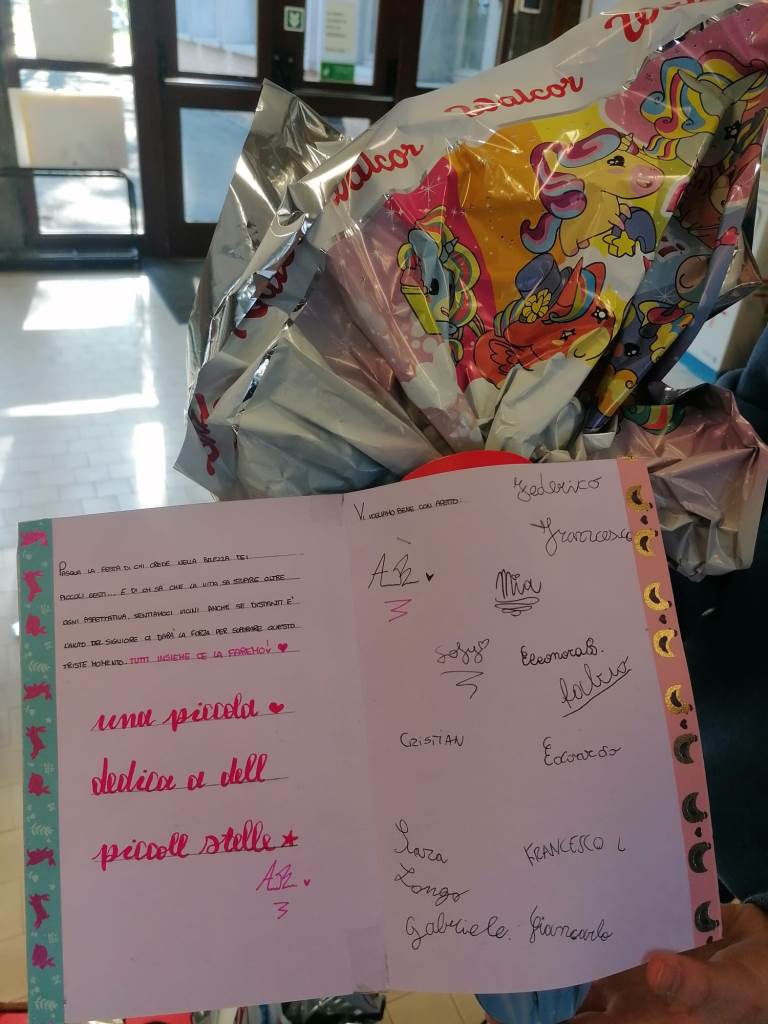 Walcor
Walcor
Walcor
PASQUA LA FESTA DI CHI CREDE NELLA BELEZZA DEI
PICCOLI GESTI... E DI CHI SA CHE LA VITA SA STUPIRE OLTRE
OGNI ASPETTATIVA. SENTIAMOCI VICINI ANCHE SE DISTANTI E'
L'AIUTO DEL SIGNIORE CI DARÀ LA FORZA PER SUPERARE QUESTO
TRISTE MOMENTO. TUTTI INSIEME CE LA FAREMO!
una piccola
dedica a dell
piccole stelle
VI VOGLIAMO BENE CON AFETTO...
Federico
Francesco
Mia
Sofy
Eleonora B.
Fabrio
CRISTIAN
Edoardo
Sara
Longo
FRANCESCO L
Gabriele.
Giancarlo